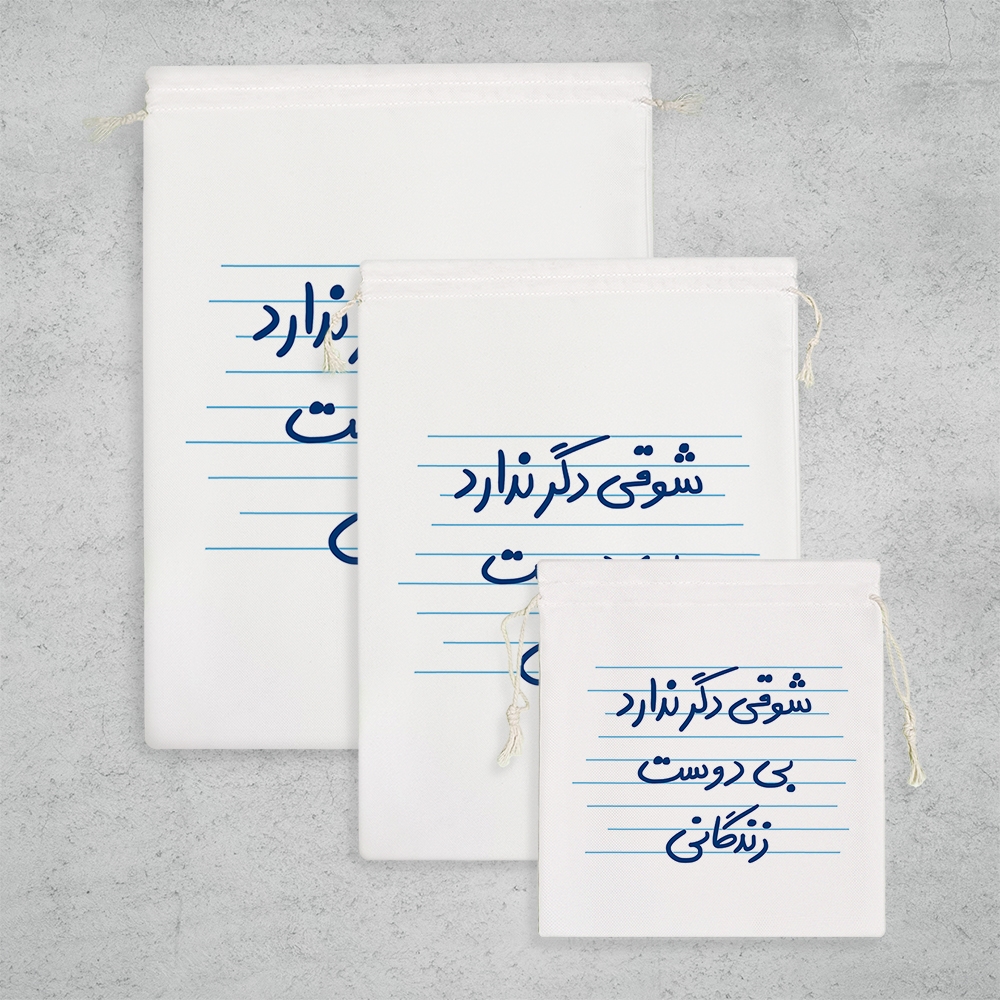 ندارد
ست
شوقی دگر ندارد
ست
شوقی دگر ندارد
بی دوست
زندگانی